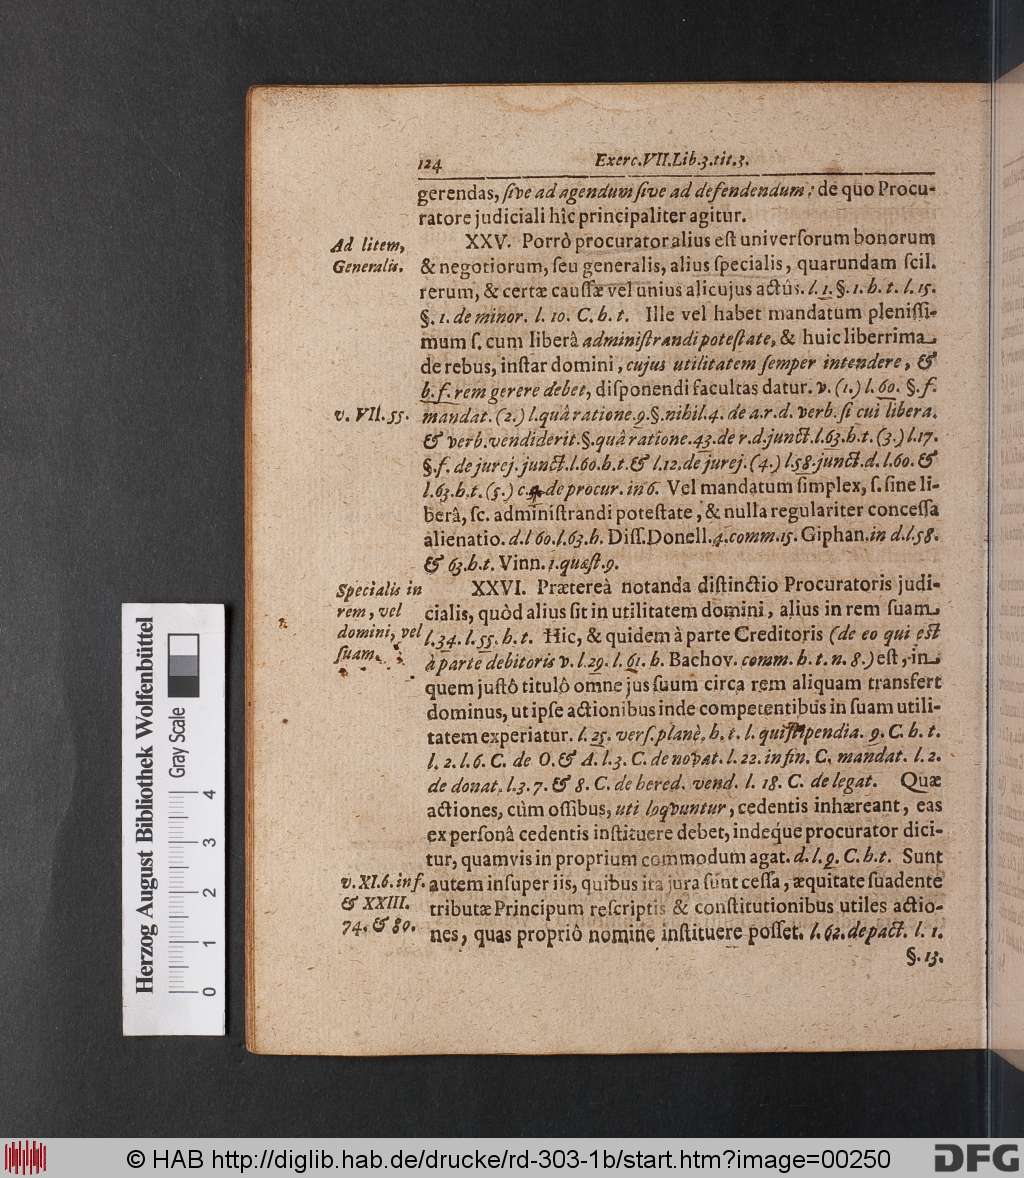 124 Exerc. VII. Lib. 3. tit. 3.
gerendas, ſive ad agendum ſive ad defendendum: de quo Procu-
ratore judiciali hîc principaliter agitur.
Ad litem,
Generalis.
XXV. Porrò procurator alius eſt univerſorum bonorum
& negotiorum, ſeu generalis, alius ſpecialis, quarundam ſcil.
rerum, & certæ cauſſæ vel unius alicujus actûs. l. 1. §. 1. h. t. l. 15.
§. 1. de minor. l. 10. C. h. t. Ille vel habet mandatum pleniſſi-
mum ſ. cum liberâ adminiſtrandi poteſtate, & huic liberrima
de rebus, inſtar domini, cujus utilitatem ſemper intendere, &
b. f. rem gerere debet, diſponendi facultas datur. v. (1.) l. 60. §. f.
v. VII. 55.
mandat. (2.) l. quâ ratione. 9. §. nihil. 4. de a. r. d. verb. ſi cui libera.
& verb. vendiderit. §. quâ ratione. 43. de r. d. junct. l. 63. h. t. (3.) l. 17.
§. f. de jurej. junct. l. 60. h. t. & l. 12. de jurej. (4.) l. 58. junct. d. l. 60. &
l. 63. h. t. (5.) c. de procur. in 6. Vel mandatum ſimplex, ſ. ſine li-
berâ, ſc. adminiſtrandi poteſtate, & nulla regulariter conceſſa
alienatio. d. l 60. l. 63. h. Diſſ. Donell. 4. comm. 15. Giphan. in d. l. 58.
& 63. h. t. Vinn. 1. quæſt. 9.
Specialis in
rem, vel
domini, vel
ſuam.
XXVI. Prætereà notanda diſtinctio Procuratoris judi-
cialis, quòd alius ſit in utilitatem domini, alius in rem ſuam
l. 34. l. 55. h. t. Hic, & quidem à parte Creditoris (de eo qui eſt
à parte debitoris v. l. 29. l. 61. h. Bachov. comm. h. t. n. 8.) eſt, in
quem juſtô titulô omne jus ſuum circa rem aliquam transfert
dominus, ut ipſe actionibus inde competentibus in ſuam utili-
tatem experiatur. l. 25. verſ. planè, h. t. l. qui ſtipendia. 9. C. h. t.
l. 2. l. 6. C. de O. & A. l. 3. C. de novat. l. 22. in fin. C. mandat. l. 2.
de donat. l. 3. 7. & 8. C. de hered. vend. l. 18. C. de legat. Quæ
actiones, cùm oſſibus, uti loqvuntur, cedentis inhæreant, eas
ex perſonâ cedentis inſtituere debet, indeque procurator dici-
tur, quamvis in proprium commodum agat. d. l. 9. C. h. t. Sunt
v. XI. 6. inf.
& XXIII.
74. & 80.
autem inſuper iis, quibus ita jura ſunt ceſſa, æquitate ſuadente
tributæ Principum reſcriptis & conſtitutionibus utiles actio-
nes, quas propriô nomine inſtituere poſſet. l. 62. de pact. l. 1.
§. 13.
Herzog August Bibliothek Wolfenbüttel
Gray Scale
0 1 2 3 4
© HAB http://diglib.hab.de/drucke/rd-303-1b/start.htm?image=00250
DFG